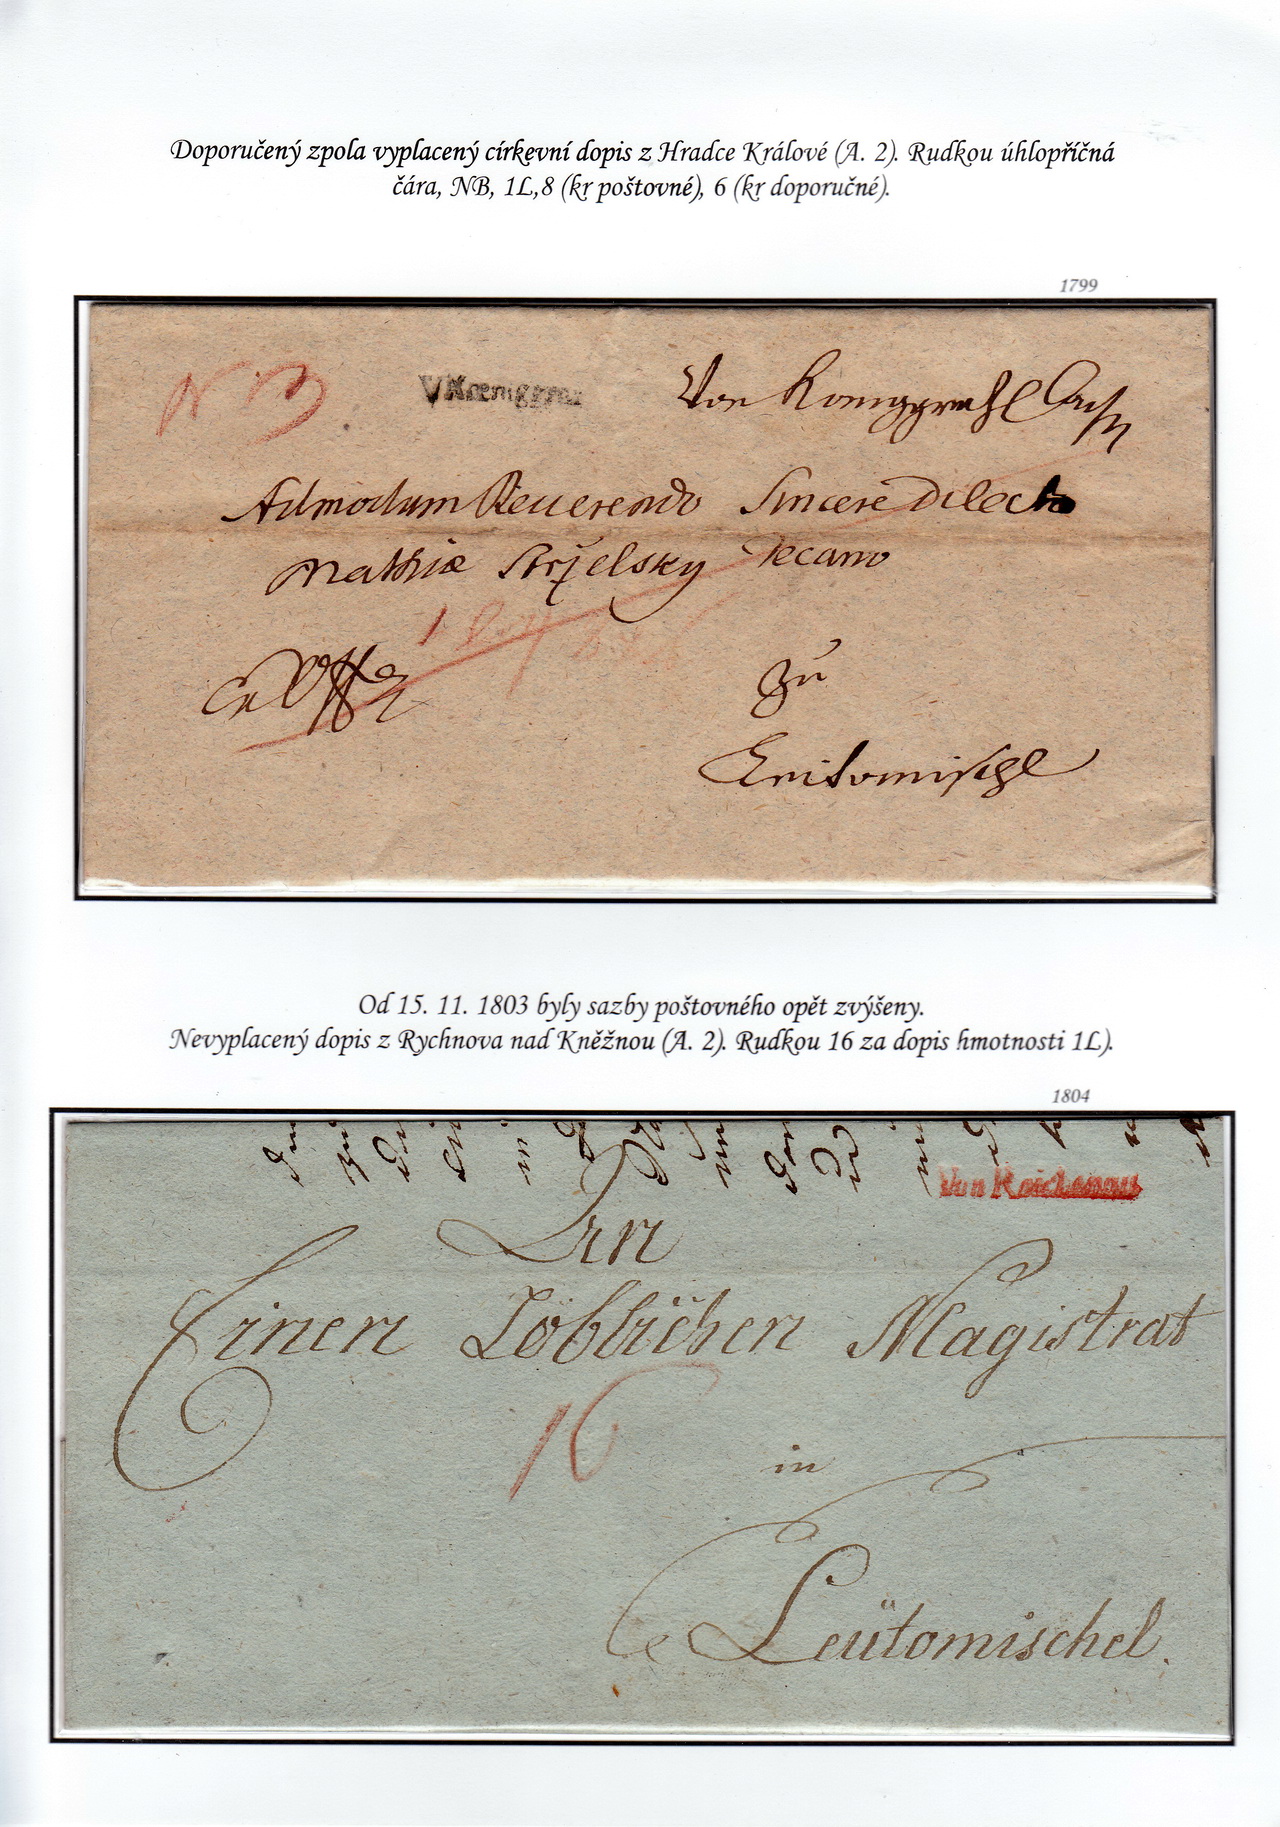 Doporučený zpola vyplacený církevní dopis z Hradce Králové (A. 2). Rudkou úhlopříčná
čára, NB, 1L,8 (kr poštovné), 6 (kr doporučné).
1799
NB
V Kœniggraz
Von Koniggrahl
Admodum Reuerendo Sincere Dilecto
Mathiæ Strželsky Decano
1
Ex Offo
Zu
Leitomischl
Od 15. 11. 1803 byly sazby poštovného opět zvýšeny.
Nevyplacený dopis z Rychnova nad Kněžnou (A. 2). Rudkou 16 za dopis hmotnosti 1L).
1804
Von Reichenau
Einen Löblichen Magistrat
16
in
Leütomischel.